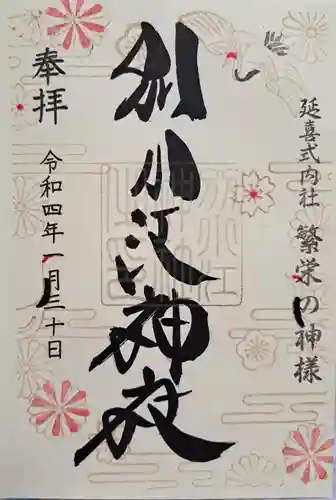 延喜式内社 繁栄の神様
別小江神社
奉拝
令和四年一月三十日